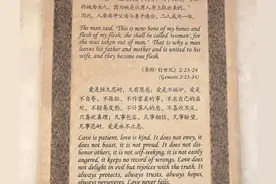 她为女人，因为她是从男人身上取出来的。"
因此，人要离开父母与妻子结合，二人成为一体。
The man said, "This is now bone of my bones and
flesh of my flesh; she shall be called 'woman', for
she was taken out of man." That is why a man
leaves his father and mother and is united to his
wife, and they become one flesh.
(圣经·创世纪) 2:23-24
(Genesis 2:23-24)
爱是恒久忍耐，又有恩慈；爱是不嫉妒，爱是
不自夸，不张狂，不作害羞的事，不求自己的益
处，不轻易发怒，不计算人的恶，不喜欢不义，
只喜欢真理；凡事包容，凡事相信，凡事盼望，
凡事忍耐，爱是永不止息。
Love is patient, love is kind. It does not envy, it
does not boast, it is not proud. It does not dis-
honor others, it is not self-seeking, it is not easily
angered, it keeps no record of wrongs. Love does
not delight in evil but rejoices with the truth. It
always protects, always trusts, always hopes,
always perseveres. Love never fails.